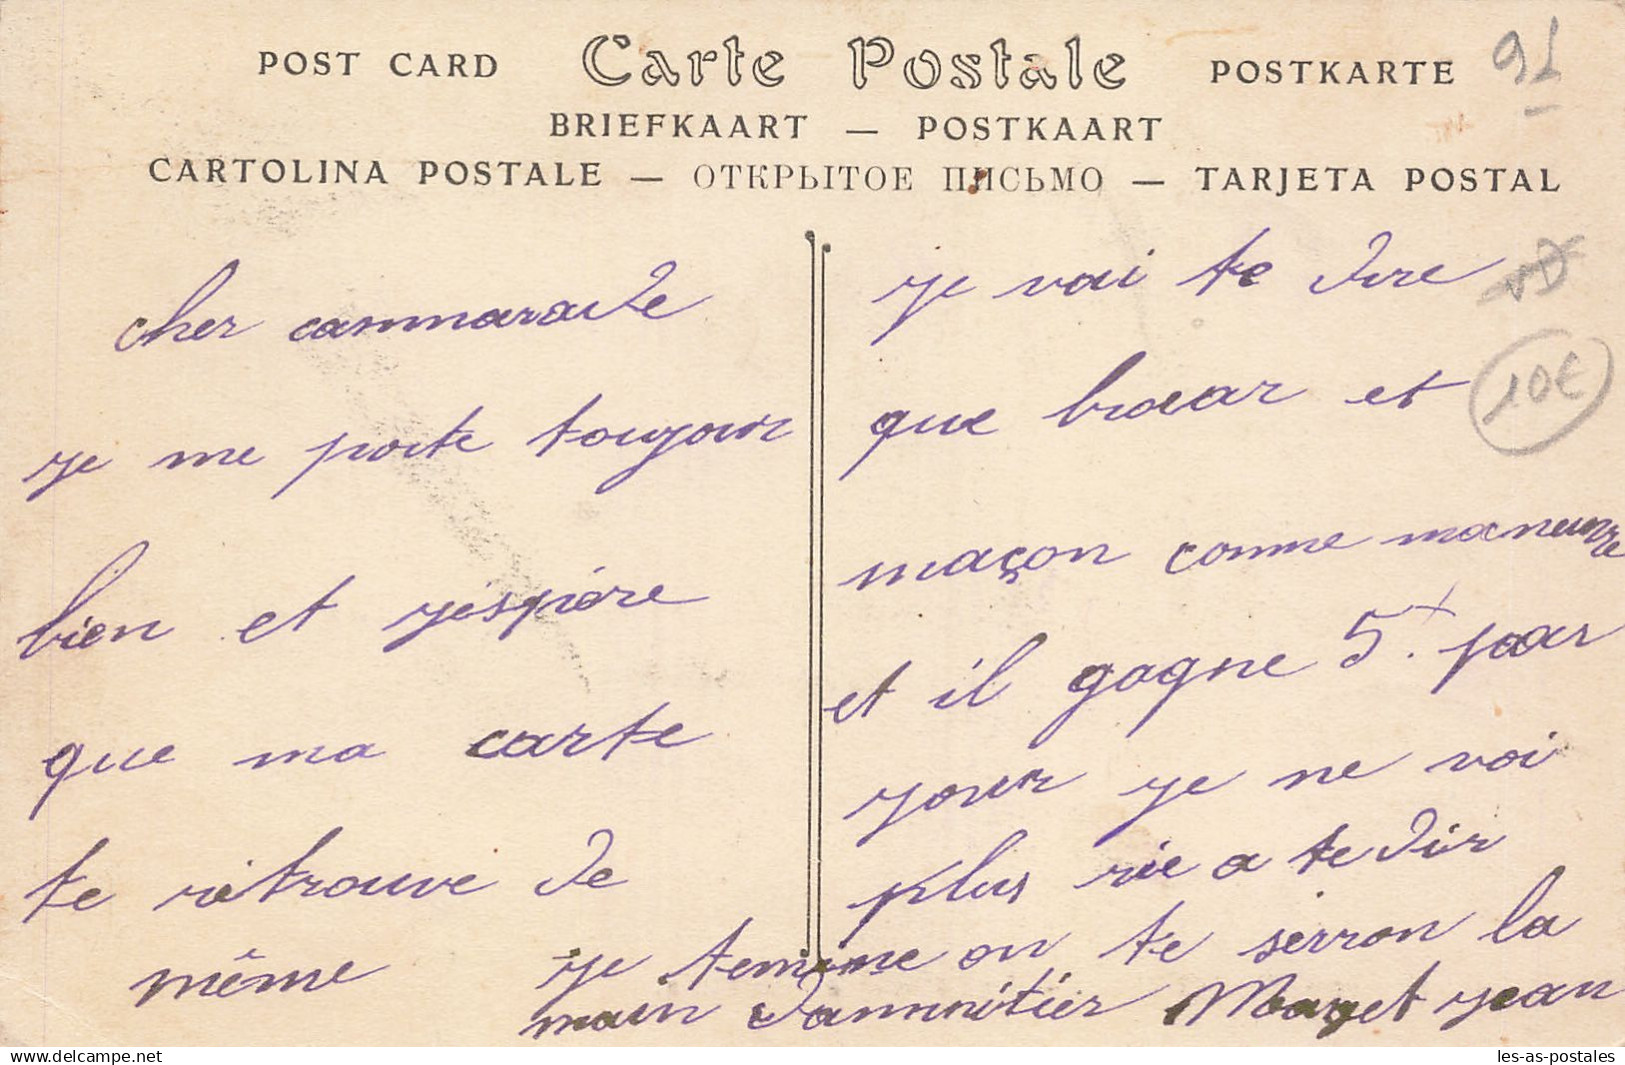 POST CARD Carte Postale POSTKARTE 91
BRIEFKAART — POSTKAART
CARTOLINA POSTALE — ОТКРЫТОЕ ПИСЬМО — TARJETA POSTAL
cher cammarade
je me porte toujour
bien et j'éspére
que ma carte
te ritrouve de
même
je vai te dire
que et
maçon comme maneuvre
et il gagne 5 par
jour je ne voi
plus rie a te dir
je temine en te serron la
main d'ammitier Mayet jean
10€
les-as-postales